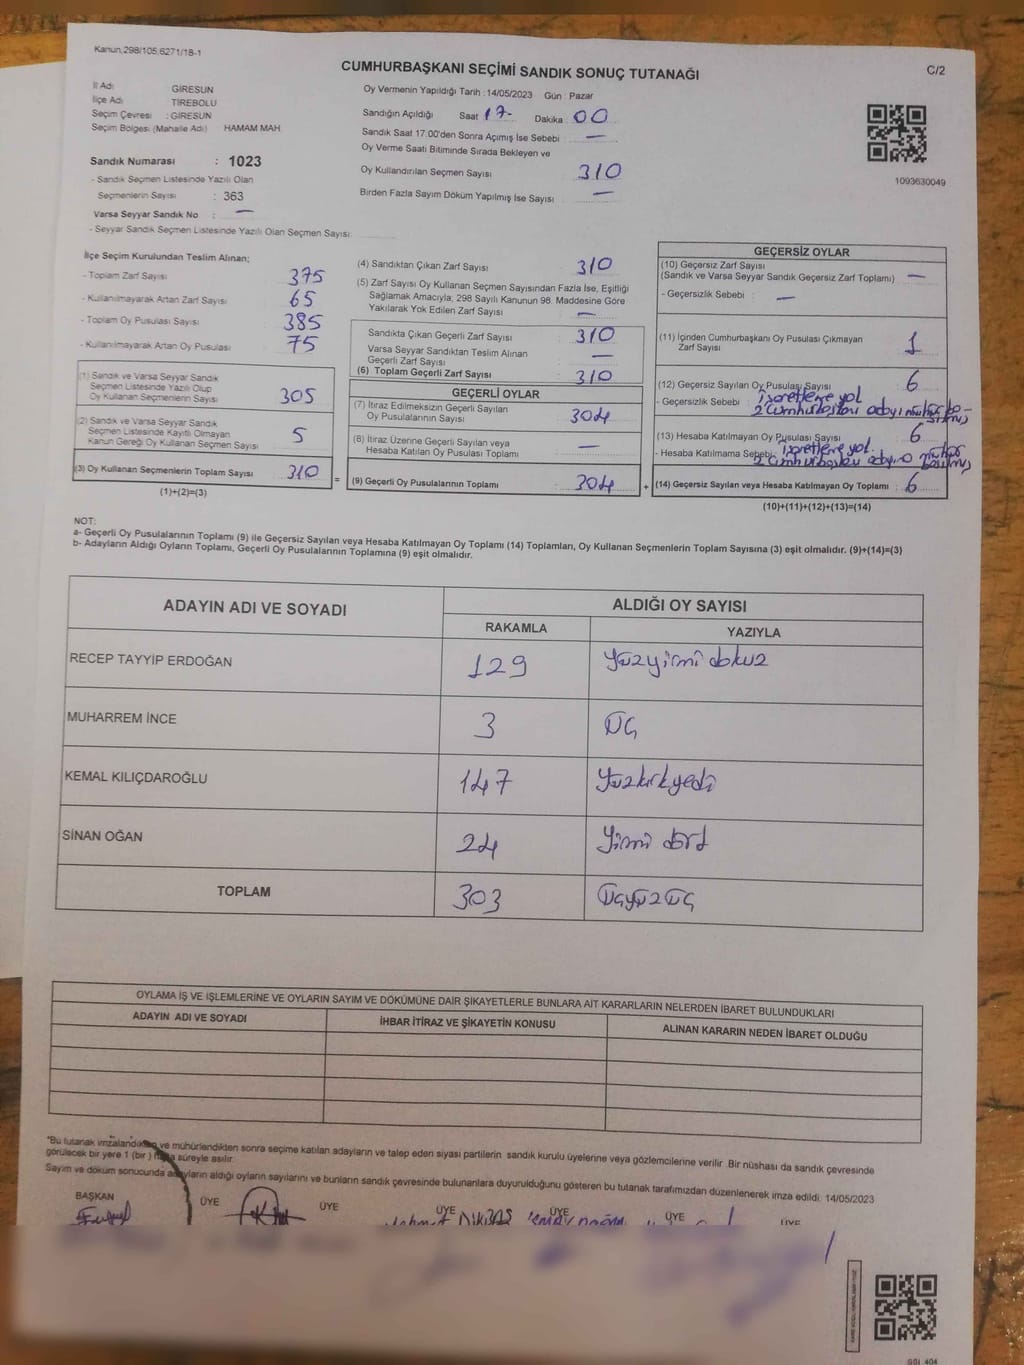 Kanun.298/105.6271/18-1
CUMHURBAŞKANI SEÇİMİ SANDIK SONUÇ TUTANAĞI
C/2
İl Adı GİRESUN
İlçe Adı TİREBOLU
Seçim Çevresi : GİRESUN
Seçim Bölgesi (Mahalle Adı) HAMAM MAH
Sandık Numarası : 1023
- Sandık Seçmen Listesinde Yazılı Olan
Seçmenlerin Sayısı : 363
Varsa Seyyar Sandık No : —
- Seyyar Sandık Seçmen Listesinde Yazılı Olan Seçmen Sayısı
Oy Vermenin Yapıldığı Tarih : 14/05/2023 Gün : Pazar
Sandığın Açıldığı Saat 17- Dakika : 00
Sandık Saat 17:00'den Sonra Açımış İse Sebebi : —
Oy Verme Saati Bitiminde Sırada Bekleyen ve
Oy Kullandırılan Seçmen Sayısı 310
Birden Fazla Sayım Döküm Yapılmış İse Sayısı —
1093630049
İlçe Seçim Kurulundan Teslim Alınan;
- Toplam Zarf Sayısı 375
- Kullanılmayarak Artan Zarf Sayısı 65
- Toplam Oy Pusulası Sayısı 385
- Kullanılmayarak Artan Oy Pusulası 75
(1) Sandık ve Varsa Seyyar Sandık
Seçmen Listesinde Yazılı Olup
Oy Kullanan Seçmenlerin Sayısı 305
(2) Sandık ve Varsa Seyyar Sandık
Seçmen Listesinde Kayıtlı Olmayan
Kanun Gereği Oy Kullanan Seçmen Sayısı 5
(3) Oy Kullanan Seçmenlerin Toplam Sayısı 310
(1)+(2)=(3)
=
(4) Sandıktan Çıkan Zarf Sayısı 310
(5) Zarf Sayısı Oy Kullanan Seçmen Sayısından Fazla İse, Eşitliği
Sağlamak Amacıyla; 298 Sayılı Kanunun 98. Maddesine Göre
Yakılarak Yok Edilen Zarf Sayısı —
Sandıkta Çıkan Geçerli Zarf Sayısı 310
Varsa Seyyar Sandıktan Teslim Alınan
Geçerli Zarf Sayısı —
(6) Toplam Geçerli Zarf Sayısı 310
GEÇERLİ OYLAR
(7) İtiraz Edilmeksizin Geçerli Sayılan
Oy Pusulalarının Sayısı 304
(8) İtiraz Üzerine Geçerli Sayılan veya
Hesaba Katılan Oy Pusulası Toplamı —
(9) Geçerli Oy Pusulalarının Toplamı 304
+
GEÇERSİZ OYLAR
(10) Geçersiz Zarf Sayısı
(Sandık ve Varsa Seyyar Sandık Geçersiz Zarf Toplamı) —
- Geçersizlik Sebebi : —
(11) İçinden Cumhurbaşkanı Oy Pusulası Çıkmayan
Zarf Sayısı 1
(12) Geçersiz Sayılan Oy Pusulası Sayısı 6
- Geçersizlik Sebebi : işaretleme yok
2 cumhurbaşkanı adayı
(13) Hesaba Katılmayan Oy Pusulası Sayısı 6
- Hesaba Katılmama Sebebi : işaretleme yok.
2 cumhurbaşkanı
(14) Geçersiz Sayılan veya Hesaba Katılmayan Oy Toplamı : 6
(10)+(11)+(12)+(13)=(14)
NOT:
a- Geçerli Oy Pusulasının Toplamı (9) ile Geçersiz Sayılan veya Hesaba Katılmayan Oy Toplamı (14) Toplamları, Oy Kullanan Seçmenlerin Toplam Sayısına (3) eşit olmalıdır. (9)+(14)=(3)
b- Adayların Aldığı Oyların Toplamı, Geçerli Oy Pusulalarının Toplamına (9) eşit olmalıdır.
ADAYIN ADI VE SOYADI ALDIĞI OY SAYISI
RAKAMLA YAZIYLA
RECEP TAYYİP ERDOĞAN 129 yüzyirmi dokuz
MUHARREM İNCE 3 ÜÇ
KEMAL KILIÇDAROĞLU 147 Yüzkırkyedi
SİNAN OĞAN 24 Yirmi dört
TOPLAM 303 Üçyüz üç
OYLAMA İŞ VE İŞLEMLERİNE VE OYLARIN SAYIM VE DÖKÜMÜNE DAİR ŞİKAYETLERLE BUNLARA AİT KARARLARIN NELERDEN İBARET BULUNDUKLARI
ADAYIN ADI VE SOYADI İHBAR İTİRAZ VE ŞİKAYETİN KONUSU ALINAN KARARIN NEDEN İBARET OLDUĞU
*Bu tutanak imzalandıktan ve mühürlendikten sonra seçime katılan adayların ve talep eden siyasi partilerin sandık kurulu üyelerine veya gözlemcilerine verilir. Bir nüshası da sandık çevresinde
görülecek bir yere 1 (bir) hafta süreyle asılır.
Sayım ve döküm sonucunda adayların aldığı oyların sayılarını ve bunların sandık çevresinde bulunanlara duyurulduğunu gösteren bu tutanak tarafımızdan düzenlenerek imza edildi. 14/05/2023
BAŞKAN ÜYE ÜYE ÜYE ÜYE ÜYE ÜYE